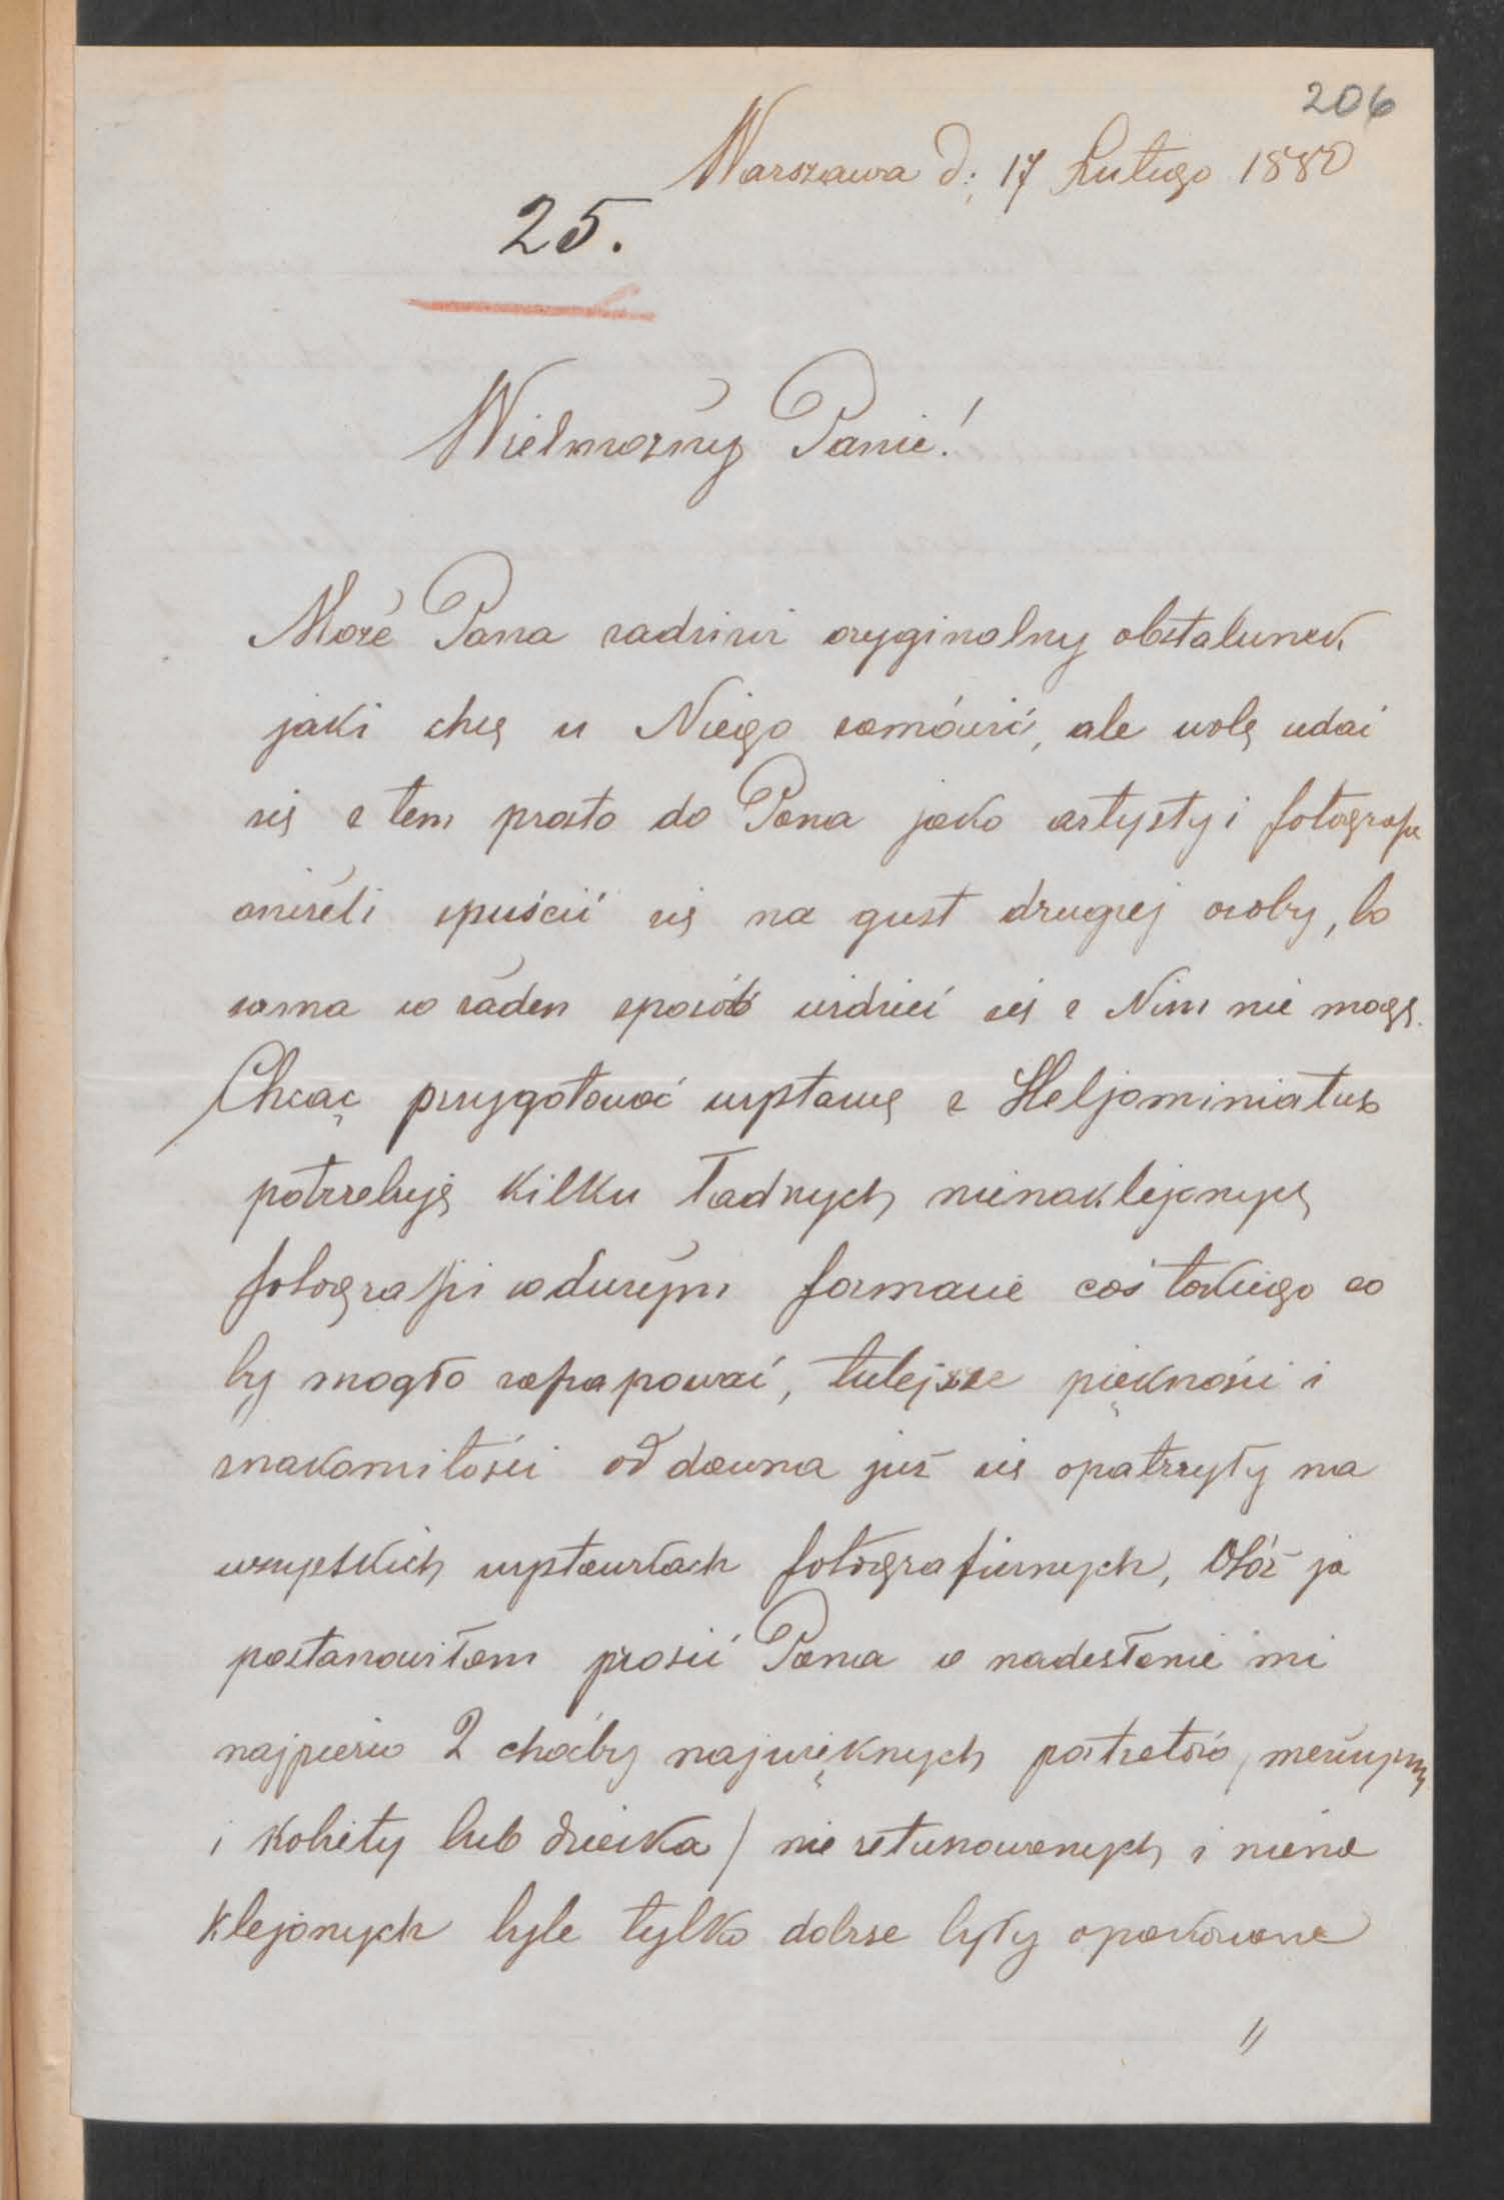 206
Warszawa d: 17 Lutego 1880
25.
Wielmożny Panie!
Może Pana zadziwi oryginalny obstalunek
jaki chcę u Niego zamówić, ale wolę udać
się z tem prosto do Pana jako artysty i fotografa
aniżeli spuścić się na gust drugiej osoby, bo
sama w żaden sposób widzieć się z Nim nie mogę.
Chcąc przygotować wystawę z Heljominiatur
potrzebuję kilku ładnych nienaklejonych
fotografji w dużym formacie coś takiego co
by mogło zaprapować, tutejsze piękności i
znakomitości od dawna już się opatrzyły na
wszystkich wystawkach fotograficznych, Otóż ja
postanowiłam prosić Pana o nadesłanie mi
najpierw 2 choćby największych portretów / mężczyzny
i kobiety lub dziecka / nie retuszowanych i niena
klejonych byle tylko dobrze były opakowane
//